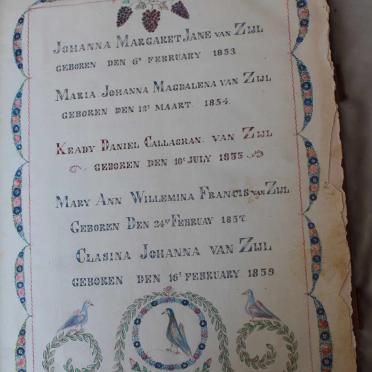 Johanna Margaret Jane van Zijl
geboren den 6e February 1853
Maria Johanna Magdalena van Zijl
geboren den 12e Maart. 1854.
Keady Daniel Callaghan. van Zijl
geboren den 10e July 1855
Mary Ann Willemina Francis van Zijl
Geboren Den 24e Februay 1857
Clasina Johanna van Zijl
geboren den 16e February 1859